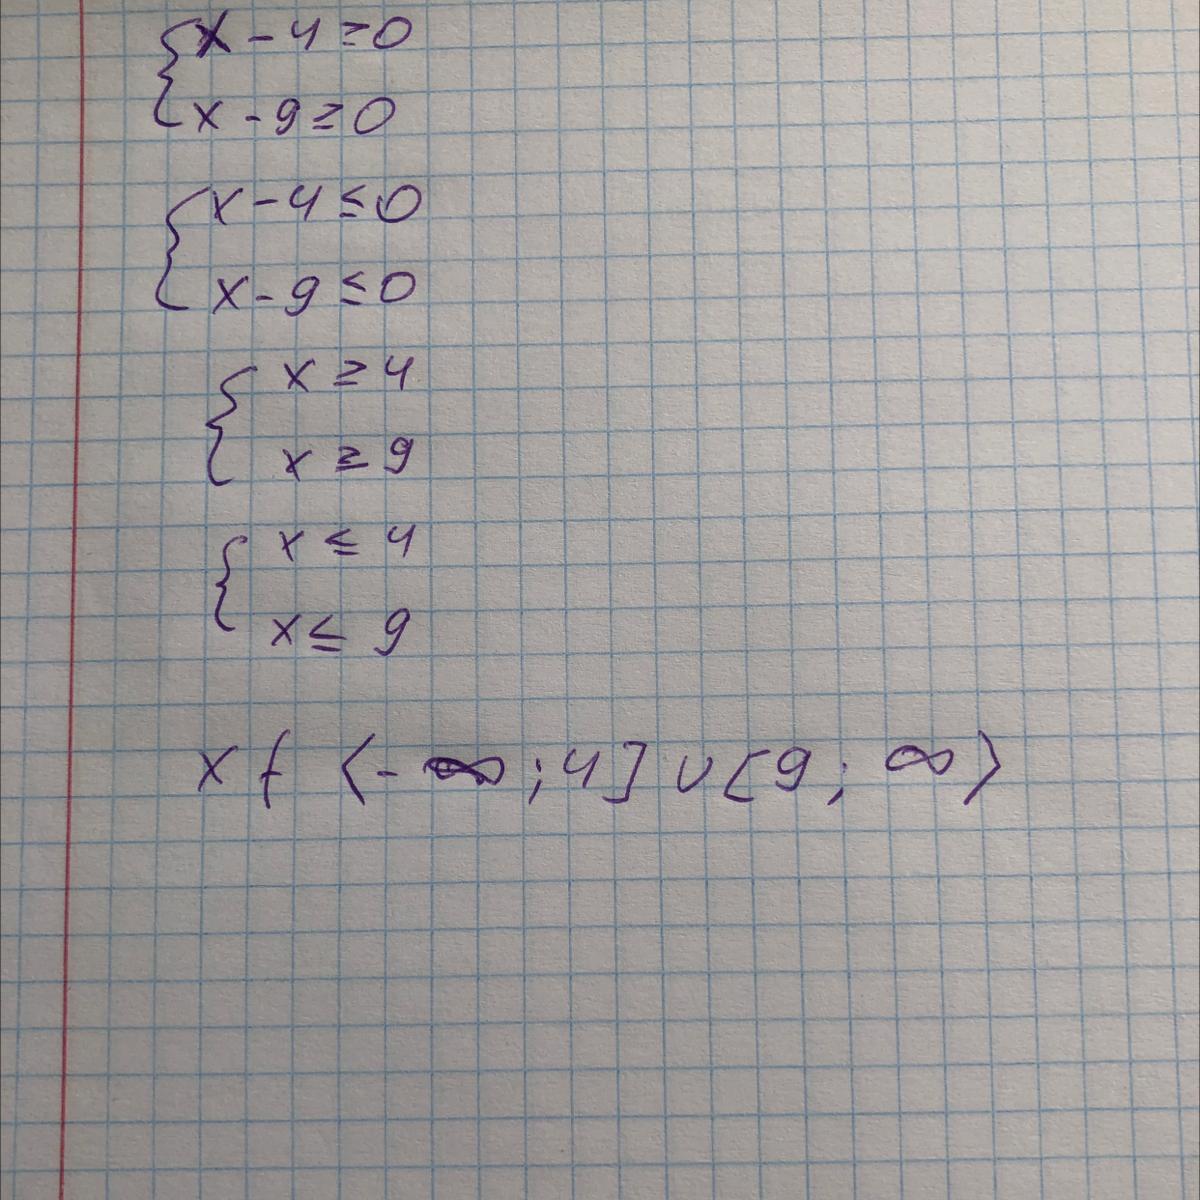 {x - 4 ≥ 0
{x - 9 ≥ 0
{x - 4 ≤ 0
{x - 9 ≤ 0
{x ≥ 4
{x ≥ 9
{x ≤ 4
{x ≤ 9
x ∈ ⟨-∞; 4] ∪ [9; ∞⟩